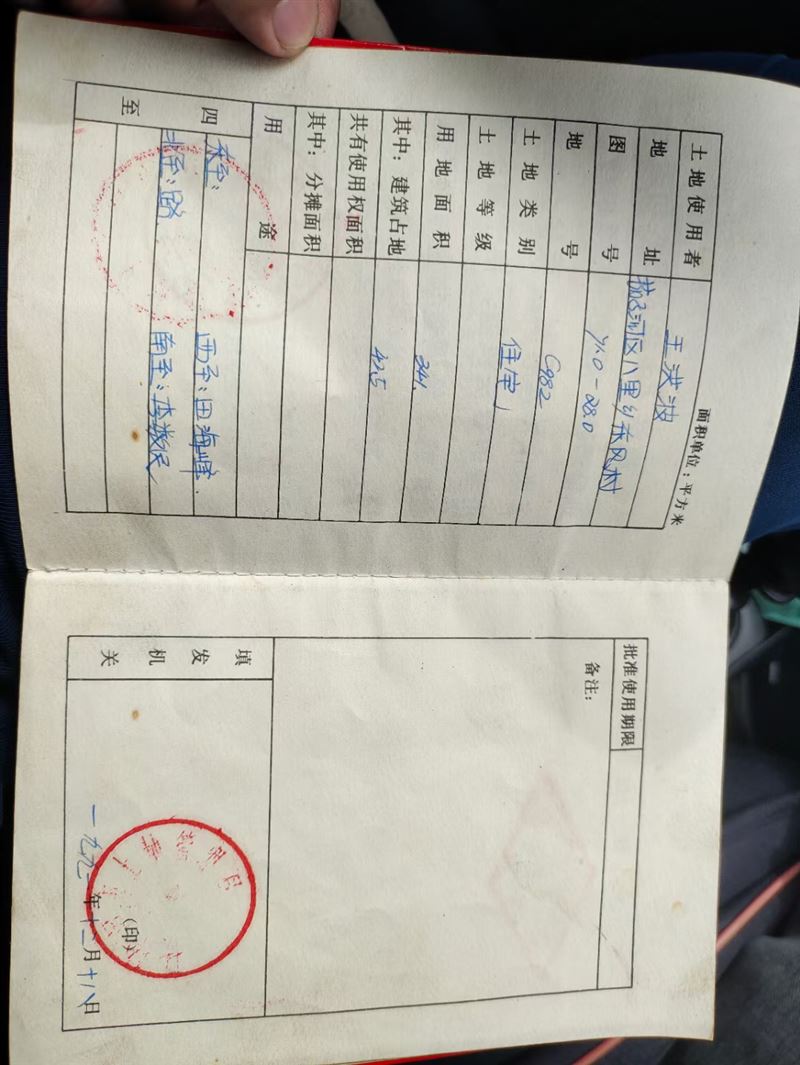 面积单位：平方米
土地使用者 王洪波
地址 茄子河区八里乡东风村
图号
地号 C982
土地类别 住宅
土地等级
用地面积 241
其中：建筑占地 42.5
共有使用权面积
其中：分摊面积
用途
四至
东至： 西至：田海峰
北至：路 南至：李
批准使用期限
备注：
填发机关
（印）
一九九一年十二月十八日